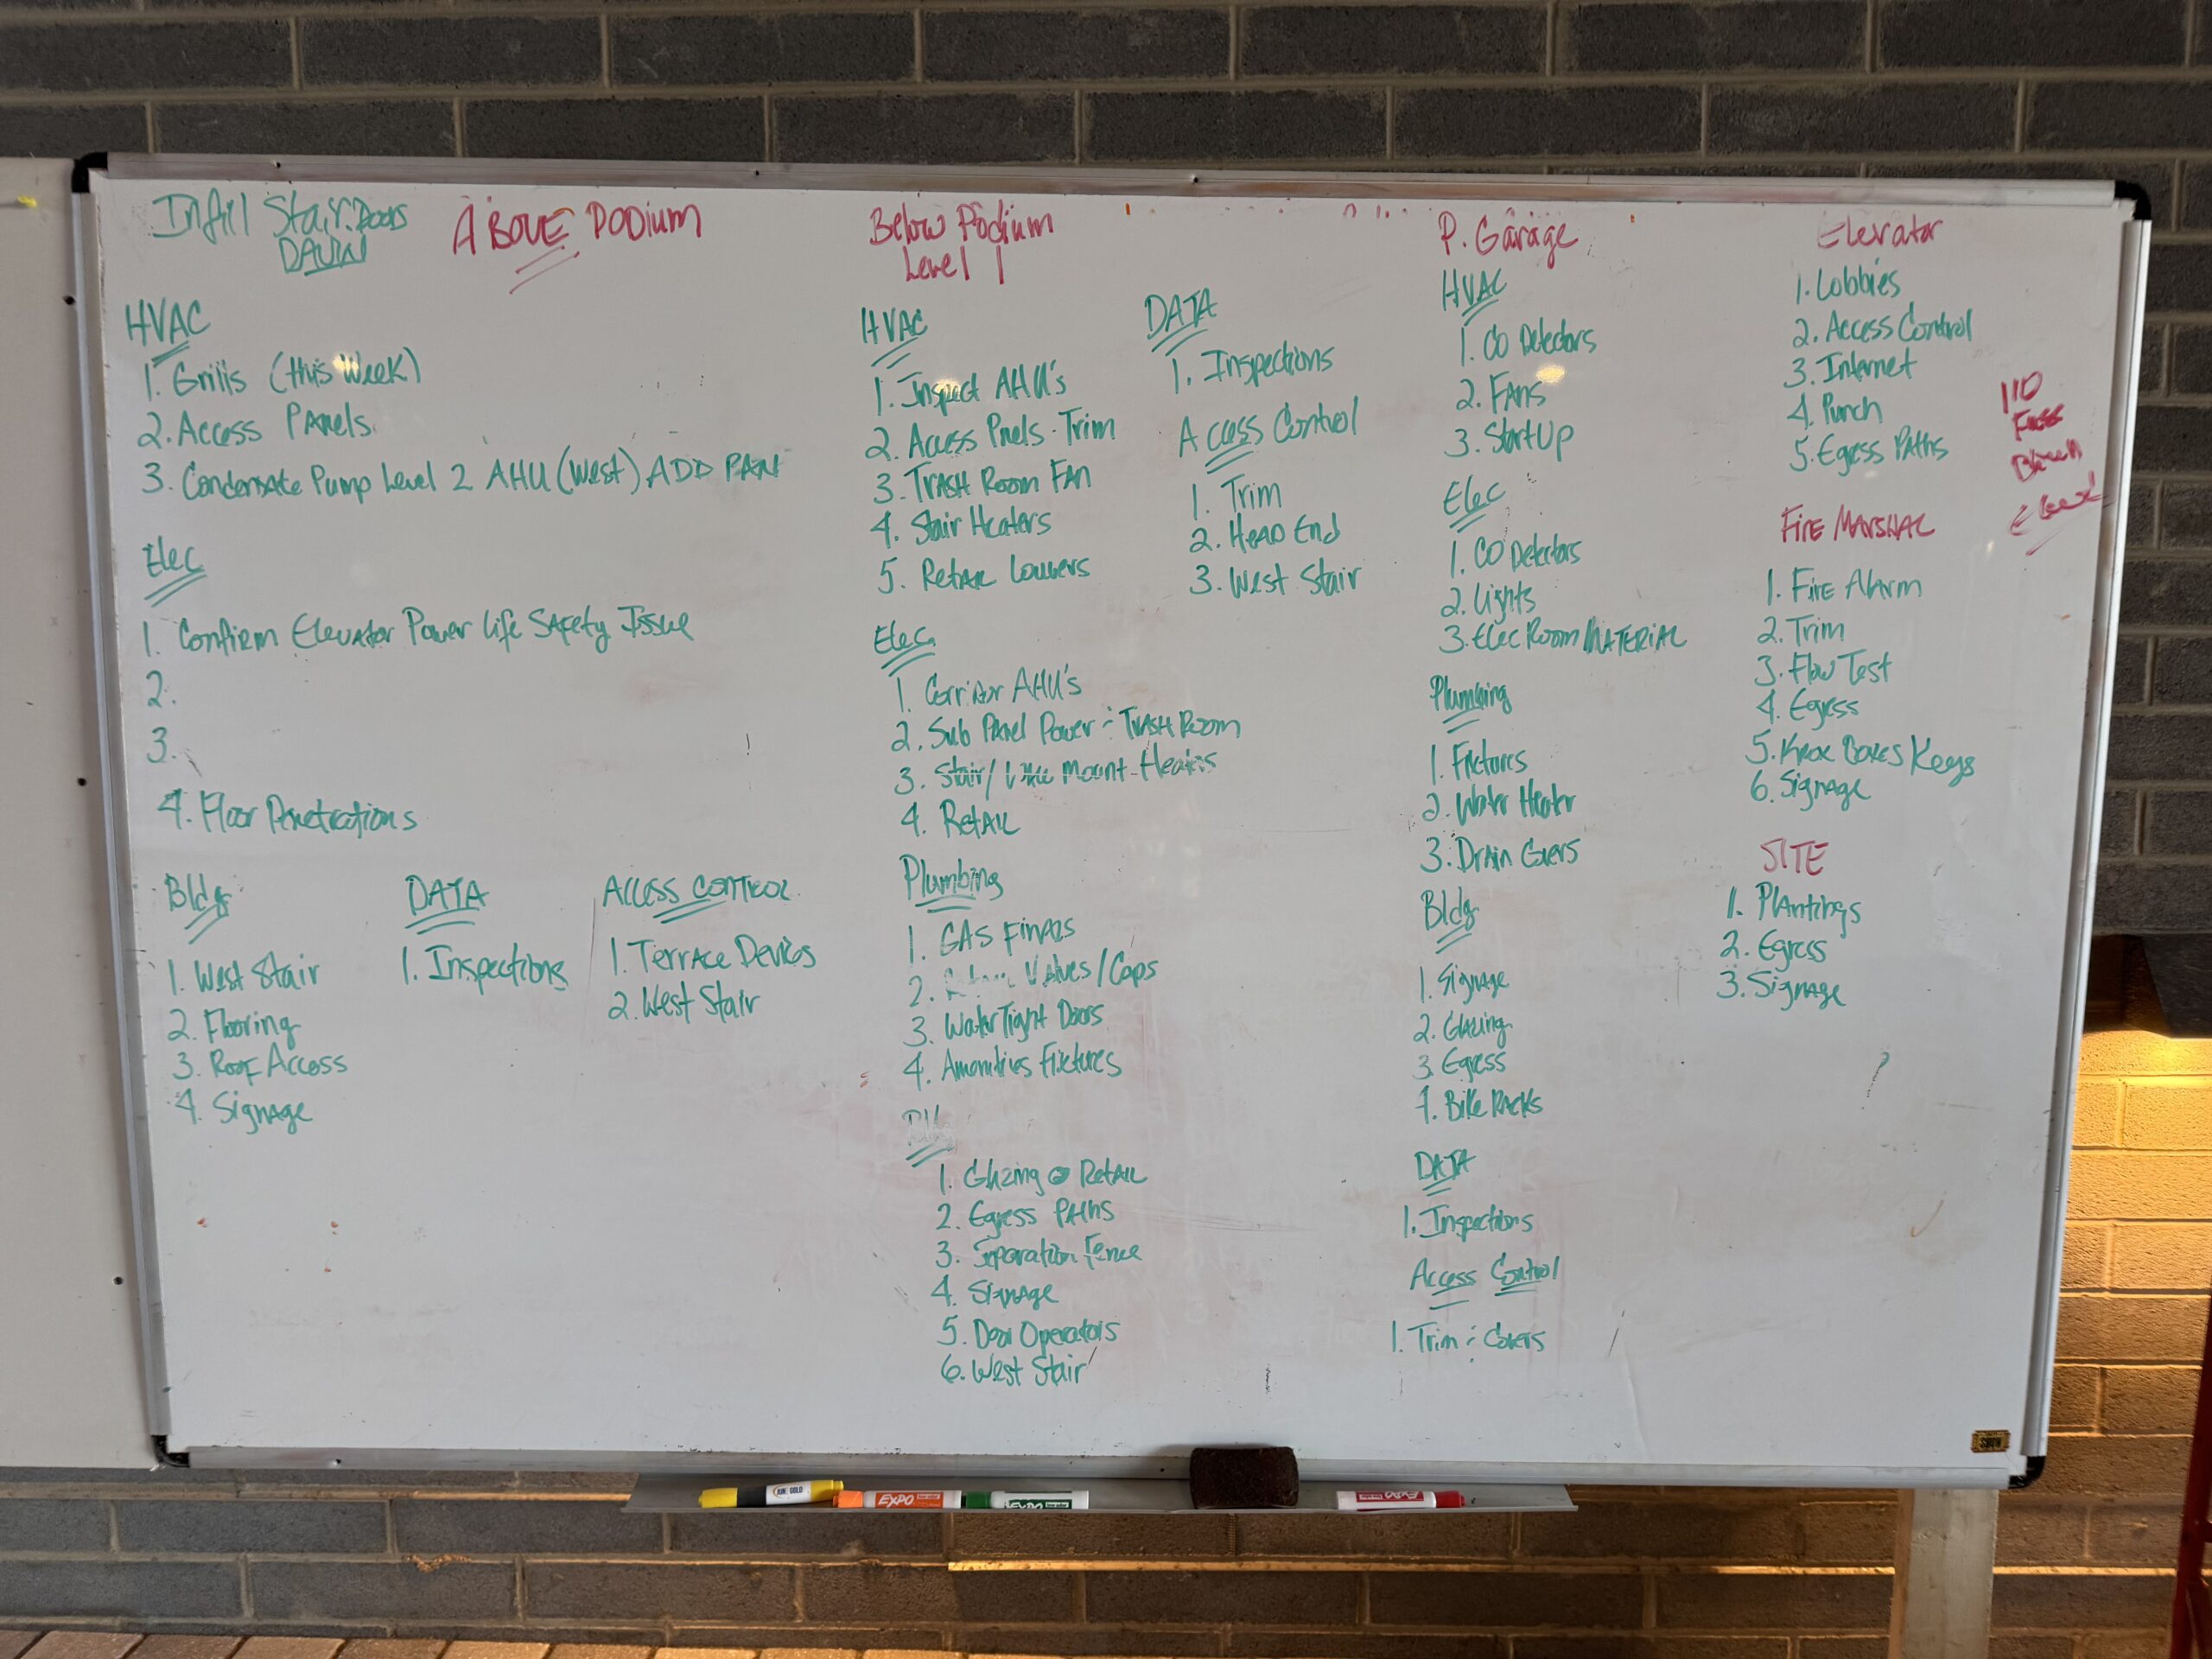 Infill Stair Doors
ABOVE PODIUM
HVAC
1. Grills (this Week)
2. Access PAnels
3. Condensate Pump Level 2 AHU (West) ADD PAN
Elec
1. Confirm Elevator Power Life SAfety Issue
2.
3.
4. Floor Penetrations
Bldg
1. West Stair
2. Flooring
3. Roof Access
4. Signage
DATA
1. Inspections
Access Control
1. Terrace Devices
2. West Stair
Below Podium
Level 1
HVAC
1. Inspect AHU's
2. Access Pnels - Trim
3. TrAsh Room FAN
4. Stair Heaters
5. Retail Louvers
Elec
1. Corridor AHU's
2. Sub PAnel Power : TrAsh Room
3. Stair/ Mount Heaters
4. RetAil
Plumbing
1. GAS FinAls
2. VAlves/Caps
3. WaterTight Doors
4. Amenities Fixtures
1. Glazing @ RetAil
2. Egress PAths
3. Separation Fence
4. Signage
5. Door Operators
6. West Stair
DATA
1. Inspections
Access Control
1. Trim
2. HeAD End
3. West Stair
P. Garage
HVAC
1. CO Detectors
2. FAns
3. StartUp
Elec
1. CO Detectors
2. Lights
3. Elec Room MATERIAL
Plumbing
1. Fixtures
2. Water Heater
3. DrAin Covers
Bldg
1. Signage
2. Glazing
3. Egress
4. Bike RAcks
DATA
1. Inspections
Access Control
1. Trim : Covers
Elevator
1. Lobbies
2. Access Control
3. Internet
4. Punch
5. Egress PAths
110
Fire MArshAl
1. Fire AlArm
2. Trim
3. Flow Test
4. Egress
5. Knox Boxes Keys
6. SignAge
SITE
1. PlAntings
2. Egress
3. SignAge
EXPO
EXPO
EXPO